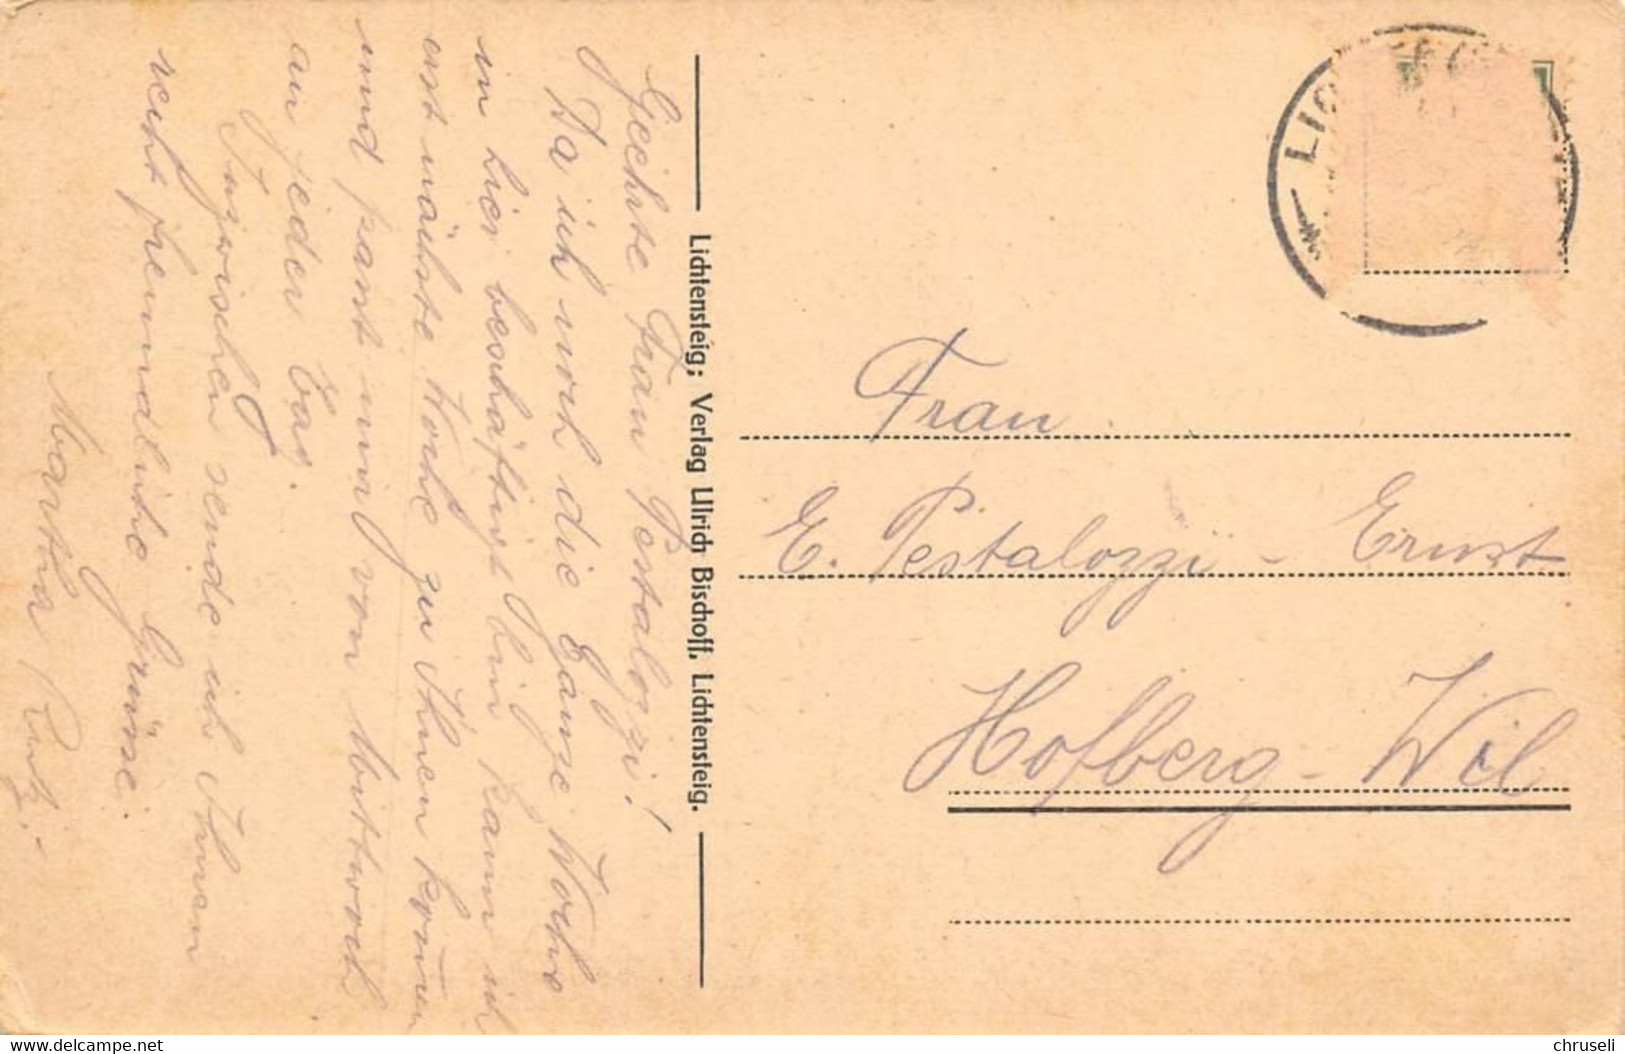 Geehrte Frau Pestalozzi!
Da ich noch die ganze Woche
in hier beschäftigt bin, kann ich
erst nächste Woche zu Ihnen kommen
und passt mir von Mittwoch
an jeder Tag.
Inzwischen sende ich Ihnen
recht freundliche Grüsse.
Martha
Lichtensteig; Verlag Ulrich Bischoff, Lichtensteig.
Frau
E. Pestalozzi - Ernst
Hofberg - Wil
https://www.delcampe.net
chruseli